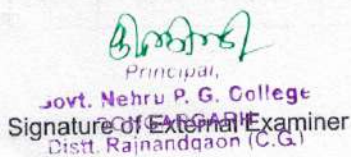 Principal,
Govt. Nehru P. G. College
DONGARGARH
Signature of External Examiner
Distt. Rajnandgaon (C.G.)